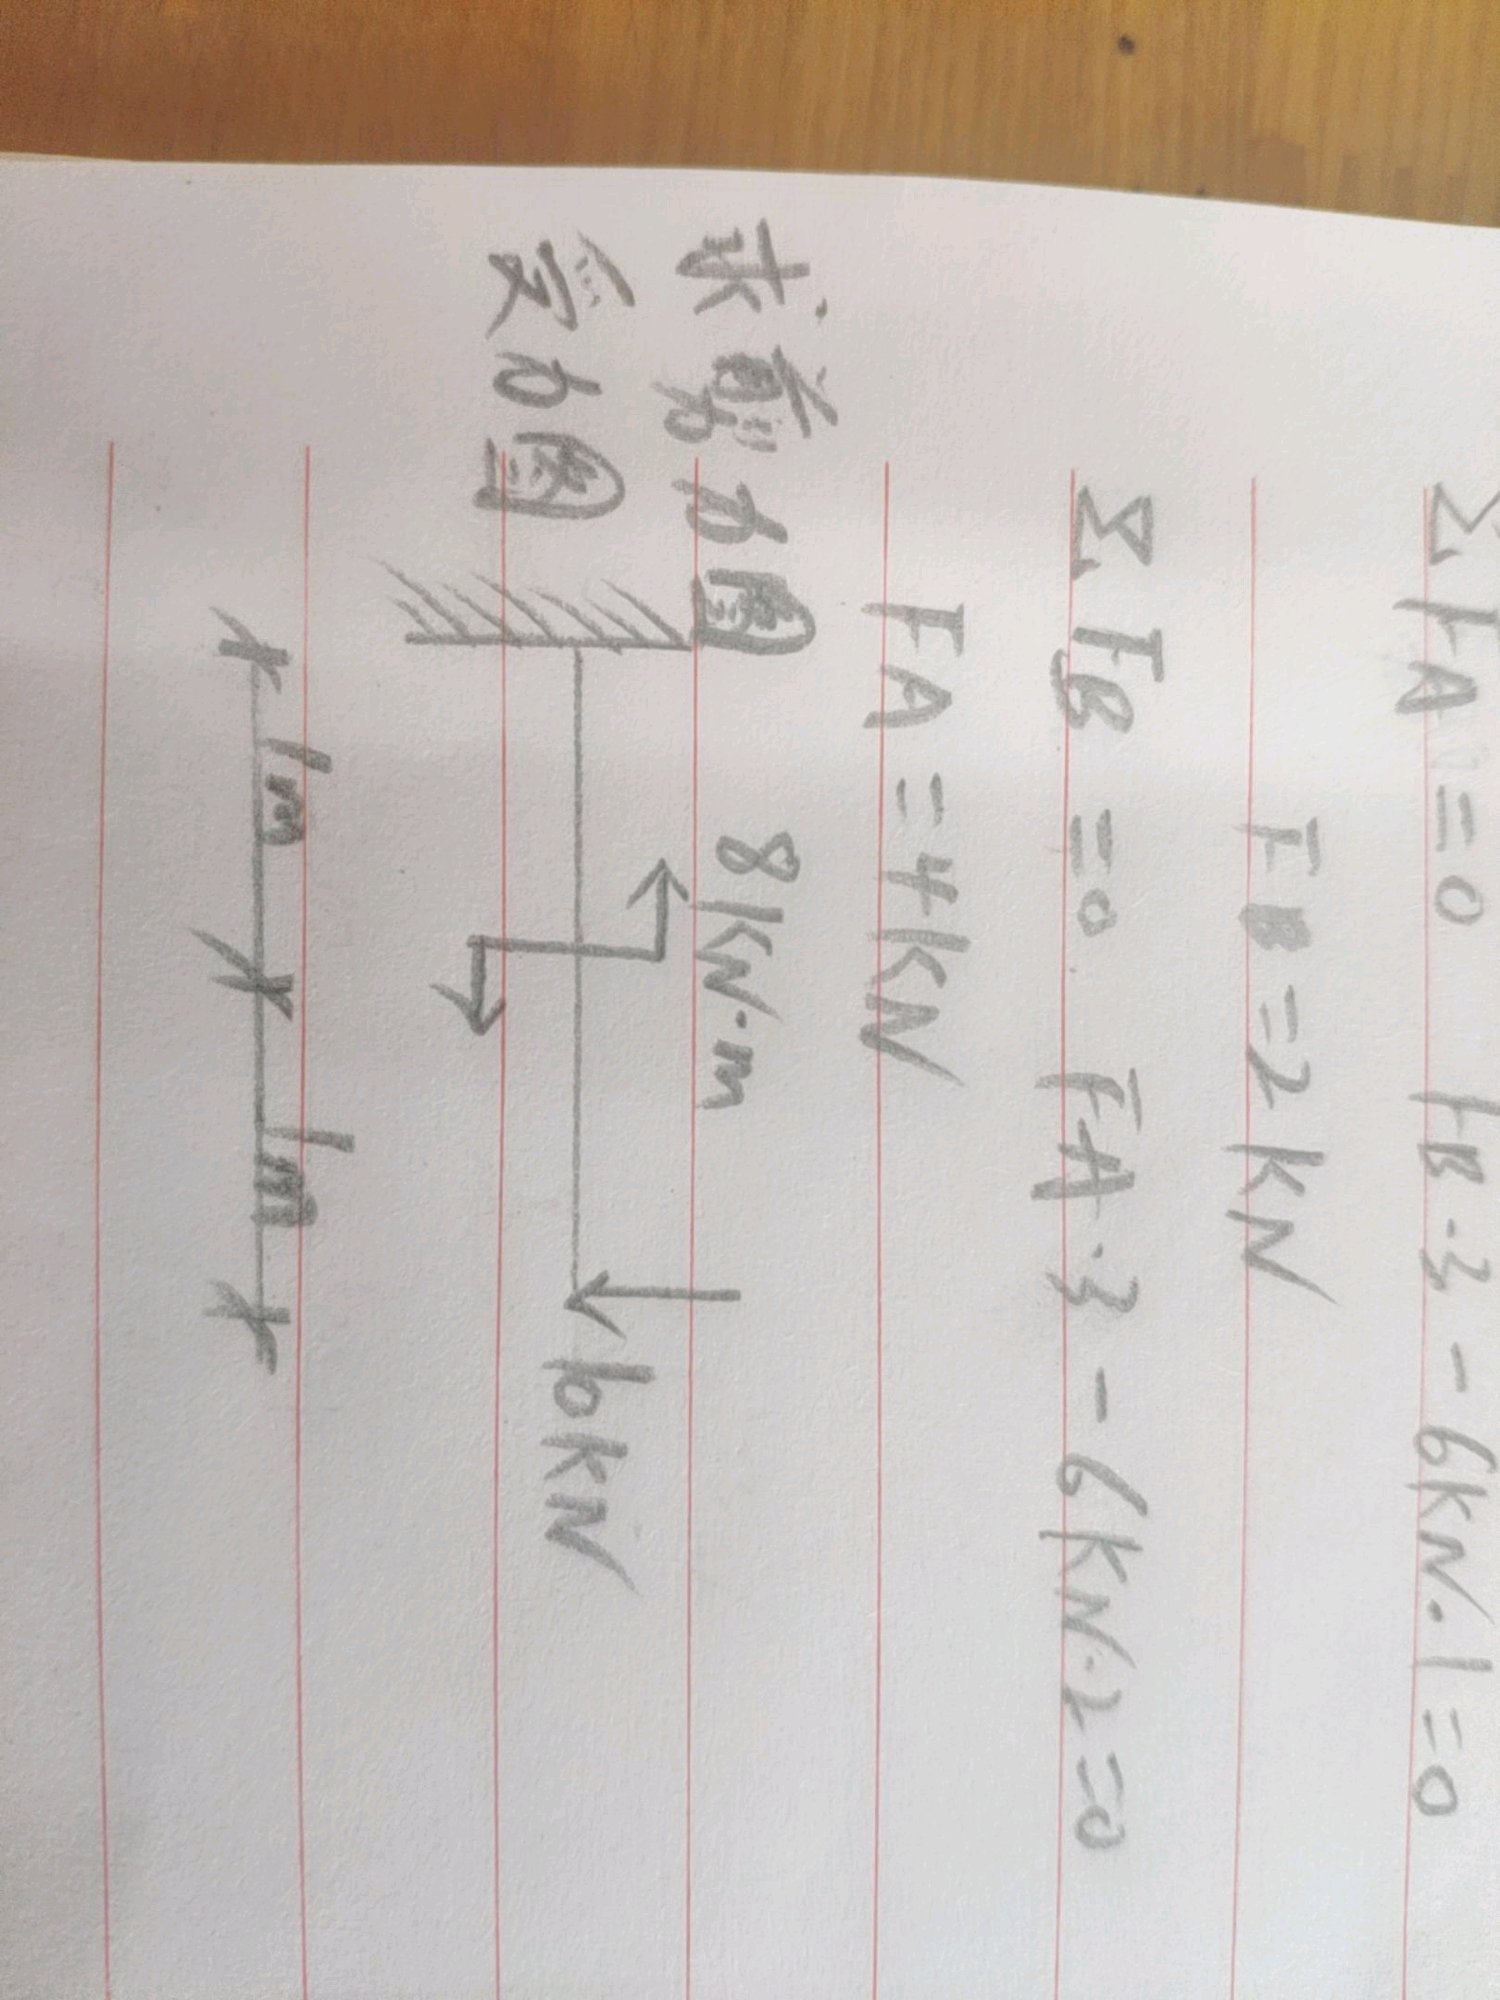 ΣFA=0 FB·3-6kN·1=0
FB=2kN
ΣFB=0 FA·3-6kN·2=0
FA=4kN
求剪力图
8kN·m
受力图
10kN
1m 1m